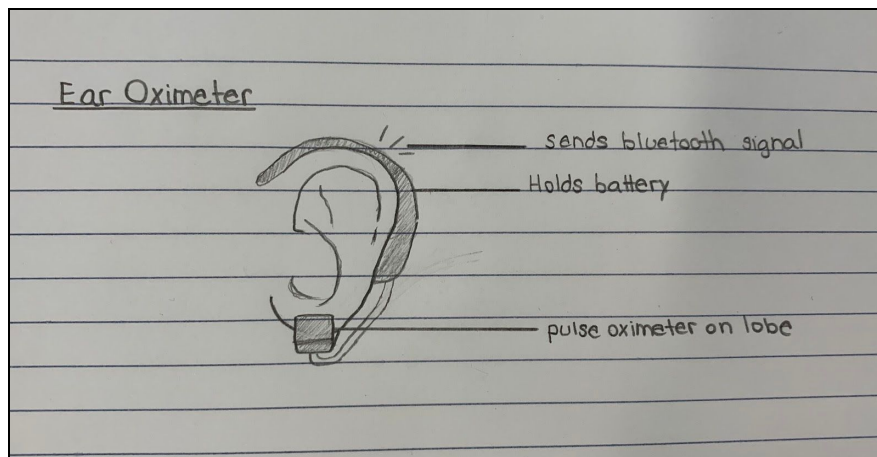 Ear Oximeter
sends bluetooth signal
Holds battery
pulse oximeter on lobe